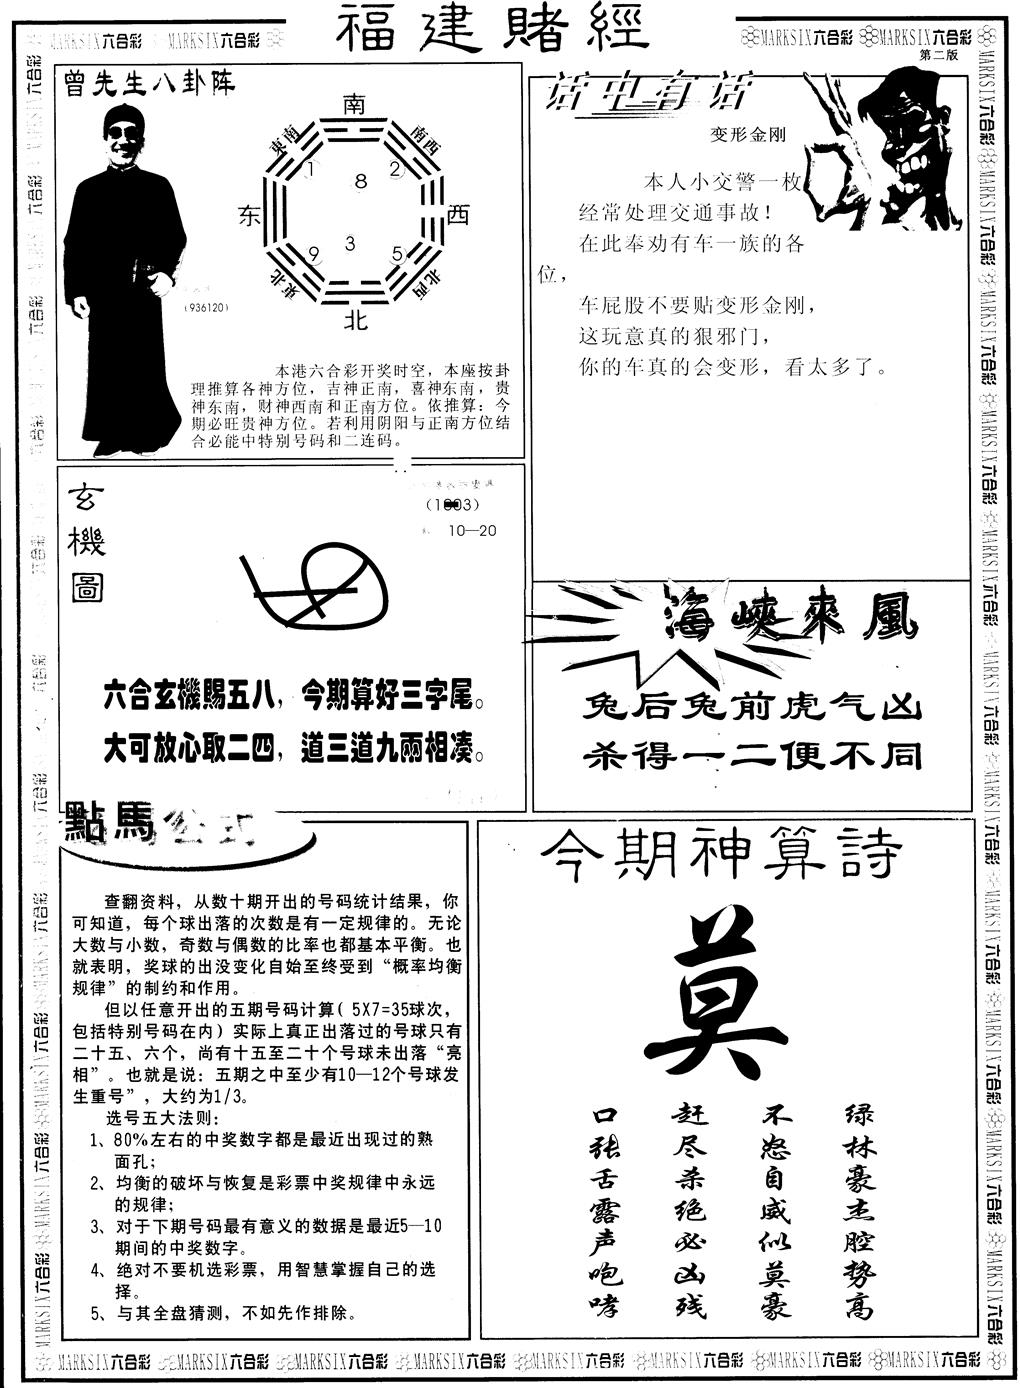 福建賭經
MARKSIX六合彩 MARKSIX六合彩
MARKSIX六合彩 MARKSIX六合彩
第二版
曾先生八卦阵
南
東南
南西
1
2
8
东
西
9
3
5
東北
北西
北
(936120)
本港六合彩开奖时空，本座按卦
理推算各神方位，吉神正南，喜神东南，贵
神东南，财神西南和正南方位。依推算：今
期必旺贵神方位。若利用阴阳与正南方位结
合必能中特别号码和二连码。
话中有话
变形金刚
本人小交警一枚
经常处理交通事故！
在此奉劝有车一族的各
位，
车屁股不要贴变形金刚，
这玩意真的狠邪门，
你的车真的会变形，看太多了。
玄機圖
10—20
六合玄機賜五八，今期算好三字尾。
大可放心取二四，道三道九兩相凑。
海峽來風
兔后兔前虎气凶
杀得一二便不同
點馬公式
查翻资料，从数十期开出的号码统计结果，你
可知道，每个球出落的次数是有一定规律的。无论
大数与小数，奇数与偶数的比率也都基本平衡。也
就表明，奖球的出没变化自始至终受到“概率均衡
规律”的制约和作用。
但以任意开出的五期号码计算( 5X7=35球次，
包括特别号码在内) 实际上真正出落过的号球只有
二十五、六个，尚有十五至二十个号球未出落“亮
相”。也就是说：五期之中至少有10—12个号球发
生重号”，大约为1/3。
选号五大法则：
1、80%左右的中奖数字都是最近出现过的熟
面孔；
2、均衡的破坏与恢复是彩票中奖规律中永远
的规律；
3、对于下期号码最有意义的数据是最近5—10
期间的中奖数字。
4、绝对不要机选彩票，用智慧掌握自己的选
择。
5、与其全盘猜测，不如先作排除。
今期神算詩
莫
绿林豪杰腔势高
不怒自威似莫豪
赶尽杀绝必凶残
口张舌露声咆哮
MARKSIX六合彩 MARKSIX六合彩 MARKSIX六合彩 MARKSIX六合彩 MARKSIX六合彩 MARKSIX六合彩 MARKSIX六合彩 MARKSIX六合彩